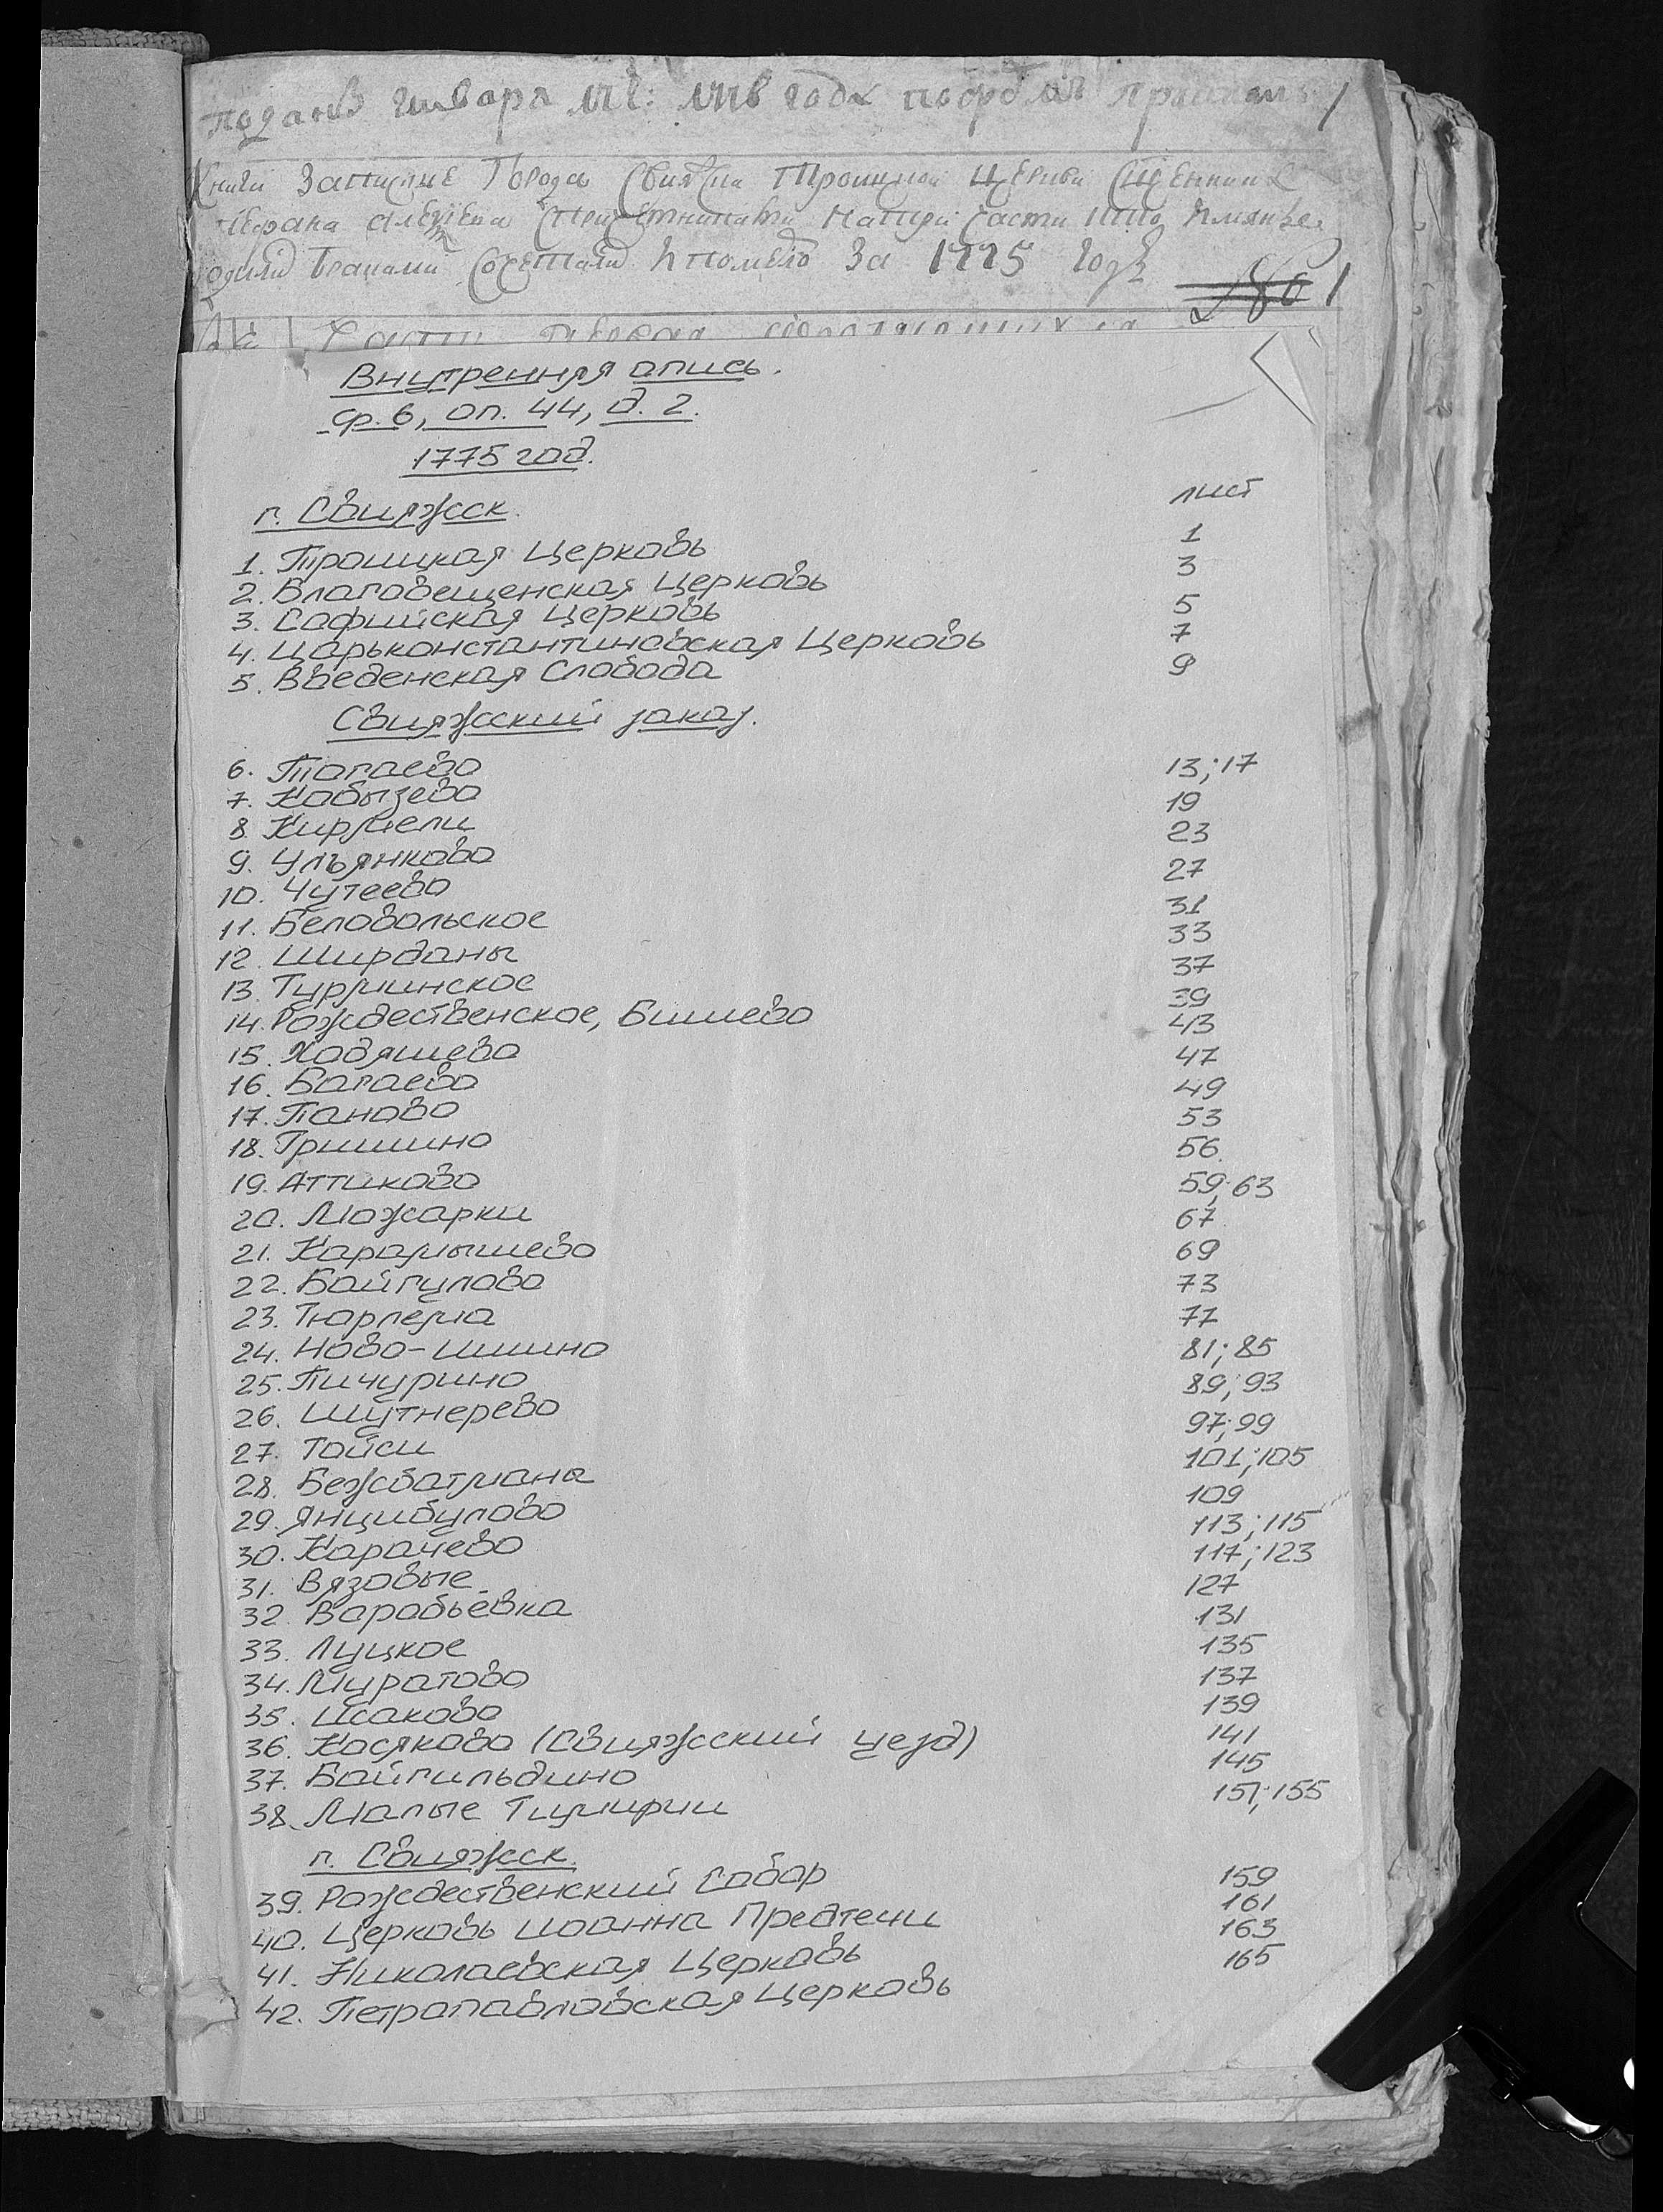 Подана Генваря году
Книги Записные Города Троицкой Церкви
За 1775 Годъ
1
Внутренняя опись.
ф. 6, оп. 44, д. 2.
1775 год.
г. Свияжск. лист
1. Троицкая Церковь 1
2. Благовещенская Церковь 3
3. Софийская Церковь 5
4. Царьконстантиновская Церковь 7
5. Введенская Слобода 9
Свияжский заказ.
6. Тогаево 13; 17
7. Кобызево 19
8. Кирмели 23
9. Ульянково 27
10. Чутеево 31
11. Беловольское 33
12. Ширданы 37
13. Турминское 39
14. Рождественское, Бишево 43
15. Ходяшево 47
16. Багаево 49
17. Паново 53
18. Гришино 56
19. Аттиково 59; 63
20. Можарки 67
21. Карамышево 69
22. Байгулово 73
23. Тюрлема 77
24. Ново-Ишино 81; 85
25. Пичурино 89; 93
26. Шутнерево 97; 99
27. Тойси 101; 105
28. Бежбатмана 109
29. Янцибулово 113; 115
30. Карачево 117; 123
31. Вязовые 127
32. Воробьевка 131
33. Луцкое 135
34. Муратово 137
35. Исаково 139
36. Косяково (Свияжский уезд) 141
37. Байгильдино 145
38. Малые Тимирчи 151; 155
г. Свияжск.
39. Рождественский Собор 159
40. Церковь Иоанна Предтечи 161
41. Николаевская Церковь 163
42. Петропавловская Церковь 165